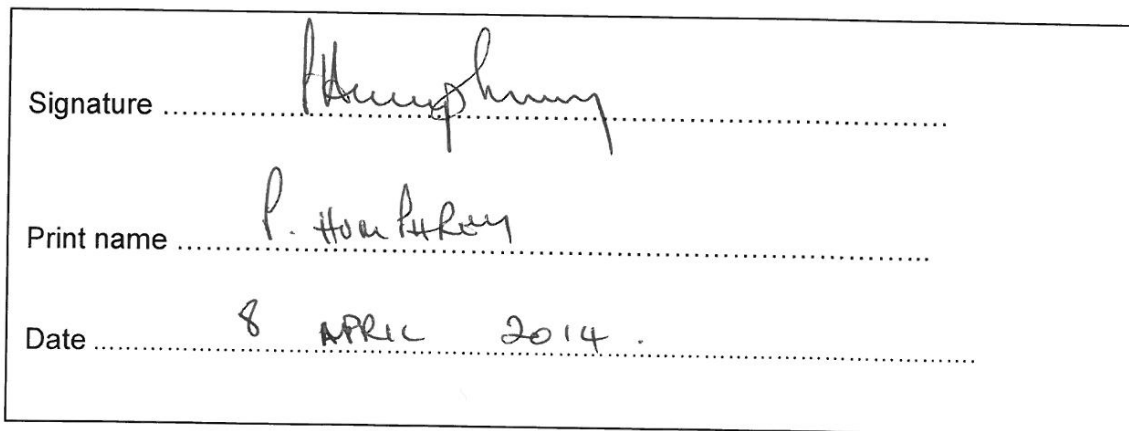 Signature ........ PHumphrey ........
Print name ........ P. HUMPHREY ........
Date ........ 8 APRIL 2014. ........